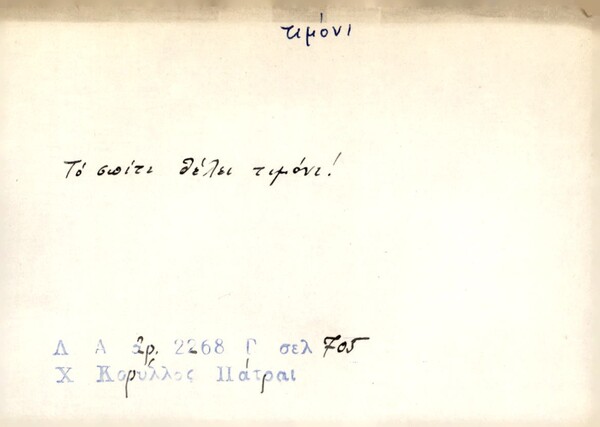 τιμόνι
Τό σπίτι θέλει τιμόνι!
Λ Α ἀρ. 2268 Γ σελ 705
Χ Κορύλλος Πάτραι